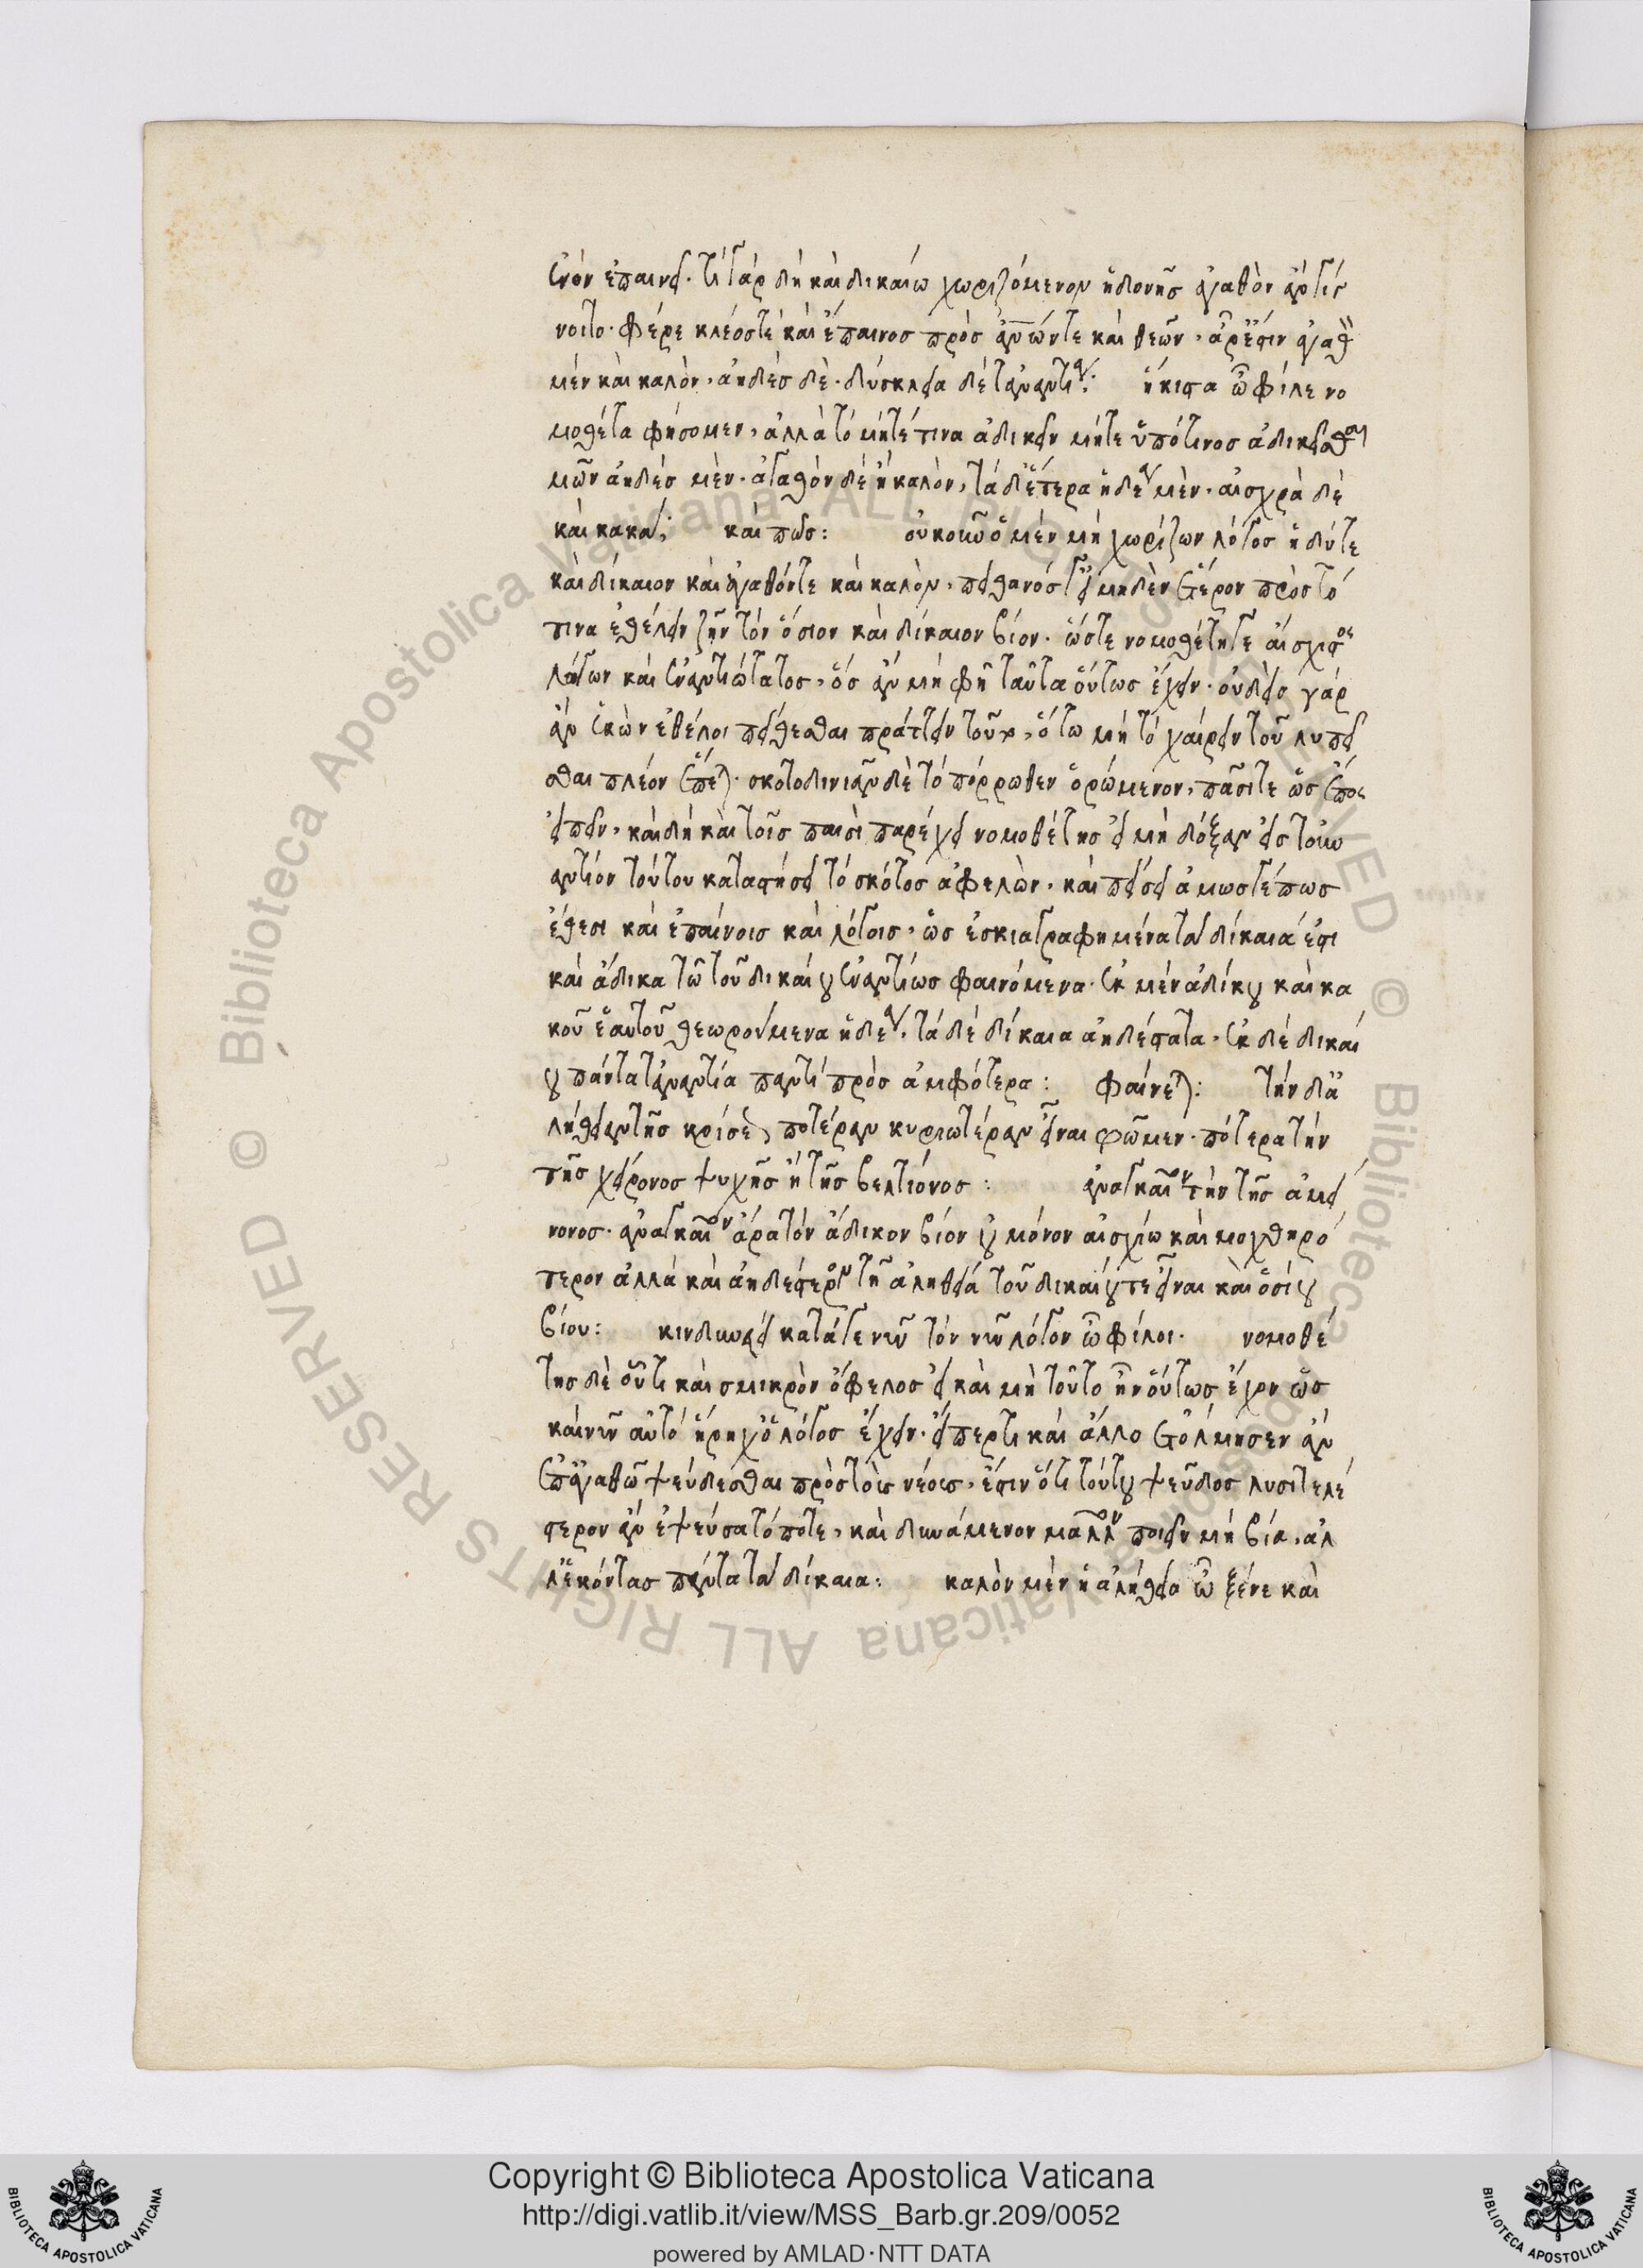 ἐνὸν ἐπαινεῖ· τί γὰρ δὴ καὶ δικαίω χωριζόμενον ἡδονῆς ἀγαθὸν ἂν γίγ
νοιτο· φέρε κλέος τὲ καὶ ἔπαινος πρὸς ἀνων τε καὶ θεῶν, ἆρ ἐστὶν ἀγαθ
μὲν καὶ καλὸν, ἀηδὲς δὲ· δύσκλεια δὲ τἀναντία· ἥκιστα ὦ φίλε νο
μοθέτα φήσομεν, ἀλλὰ τὸ μήτέ τινα ἀδικεῖν μήτε ὑπό τινος ἀδικεῖσθαι
μῶν ἀηδὲς μὲν· ἀγαθὸν δὲ ἢ καλὸν, τὰ δ' ἕτερα ἡδέα μὲν· αἰσχρὰ δὲ
καὶ κακά; καὶ πῶς: οὐκοῦν ὁ μὲν μὴ χωρίζων λόγος ἡδύ τε
καὶ δίκαιον καὶ ἀγαθόν τε καὶ καλὸν, πιθανός γ' εἰ μηδὲν ἕτερον πρὸς τό
τινα ἐθέλειν ζῆν τὸν ὅσιον καὶ δίκαιον βίον· ὥστε νομοθέτη γε αἴσχιστος
λόγων καὶ ἐναντιώτατος, ὃς ἂν μὴ φῆ ταῦτα οὕτως ἔχειν· οὐδεὶς γὰρ
ἂν ἑκὼν ἐθέλοι πείθεσθαι πράττειν τοῦτο, ὅτω μὴ τὸ χαίρειν τοῦ λυπεῖ
σθαι πλέον ἕπεται· σκοτοδινιᾶν δὲ τὸ πόρρωθεν ὁρώμενον, πᾶσί τε ὡς ἔπος
εἰπεῖν, καὶ δὴ καὶ τοῖς παισὶ παρέχει νομοθέτης εἰ μὴ δόξαν εἰς τοὐν
αντίον τούτου καταστήσει τὸ σκότος ἀφελὼν, καὶ πείσει ἁμωσγέπως
ἔθεσι καὶ ἐπαίνοις καὶ λόγοις, ὡς ἐσκιαγραφημένα τὰ δίκαιά ἐστι
καὶ ἄδικα τῶ τοῦ δικαίου ἐναντίως φαινόμενα· ἐκ μὲν ἀδίκου καὶ κα
κοῦ ἑαυτοῦ θεωρούμενα ἡδέα, τὰ δὲ δίκαια ἀηδέστατα, ἐκ δὲ δικαί
ου πάντα τἀναντία παντὶ πρὸς ἀμφότερα: φαίνεται: τὴν δ' ἀ
λήθειαν τῆς κρίσεως ποτέραν κυριωτέραν εἶναι φῶμεν· πότερα τὴν
τῆς χείρονος ψυχῆς ἢ τῆς βελτίονος: ἀναγκαῖον τὴν τῆς ἀμεί
νονος· ἀναγκαῖον ἄρα τὸν ἄδικον βίον οὐ μόνον αἰσχίω καὶ μοχθηρό
τερον ἀλλὰ καὶ ἀηδέστερον τῆ ἀληθεία τοῦ δικαίου τε εἶναι καὶ ὁσίου
βίου: κινδυνεύει κατά γε νῦν τὸν νῦν λόγον ὦ φίλοι· νομοθέ
της δὲ οὗ τι καὶ σμικρὸν ὄφελος εἰ καὶ μὴ τοῦτο ἦν οὕτως ἔχον ὡς
καὶ νῦν αὐτὸ ᾕρηχ' ὁ λόγος ἔχειν· εἴπερ τι καὶ ἄλλο ἐτόλμησεν ἂν
ἐπ' ἀγαθῶ ψεύδεσθαι πρὸς τοὺς νέους, ἔστιν ὅτι τούτου ψεῦδος λυσιτελέ
στερον ἂν ἐψεύσατό ποτε, καὶ δυνάμενον μᾶλλον ποιεῖν μὴ βία, ἀλ
λ' ἑκόντας πάντα τὰ δίκαια: καλὸν μὲν ἡ ἀλήθεια ὦ ξένε καὶ
© Biblioteca Apostolica Vaticana ALL RIGHTS RESERVED © Biblioteca Apostolica Vaticana ALL RIGHTS RESERVED
Copyright © Biblioteca Apostolica Vaticana
http://digi.vatlib.it/view/MSS_Barb.gr.209/0052
powered by AMLAD·NTT DATA
BIBLIOTECA APOSTOLICA VATICANA
BIBLIOTECA APOSTOLICA VATICANA